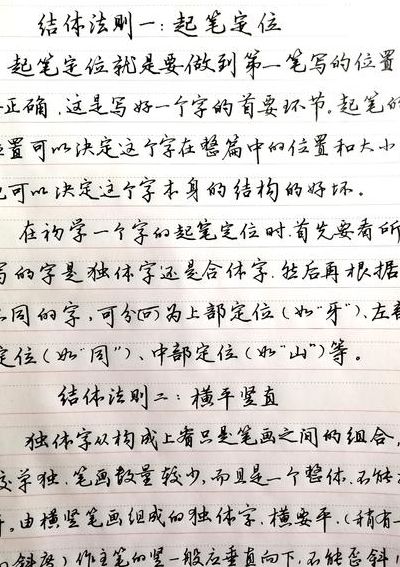 结体法则一:起笔定位
起笔定位就是要做到第一笔写的位置
正确,这是写好一个字的首要环节。起笔的
位置可以决定这个字在整篇中的位置和大小
也可以决定这个字本身的结构的好坏。
在初学一个字的起笔定位时.首先要看所
写的字是独体字还是合体字.然后再根据
不同的字,可分为上部定位(如"牙")、左部
定位(如"同")、中部定位(如"山")等。
结体法则二:横平竖直
独体字从构成上看只是笔画之间的组合,
较单独.笔画数量较少,而且是一个整体.不能
由横竖笔画组成的独体字.横要平.(稍有一
作主笔的竖一般应垂直向下.不能歪斜